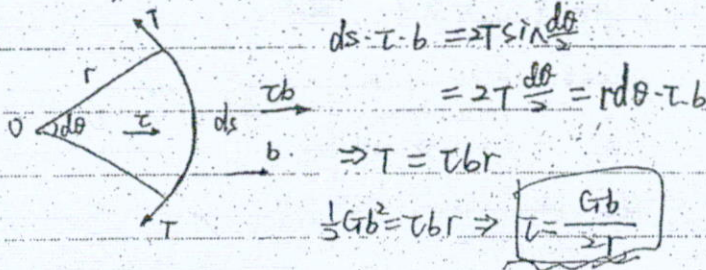 T
r
O
dθ
τ
ds
τb
b
T
ds·τ·b = 2T sin dθ/2
= 2T dθ/2 = rdθ·τ·b
⇒ T = τbr
1/2 Gb² = τbr ⇒ τ = Gb/2r